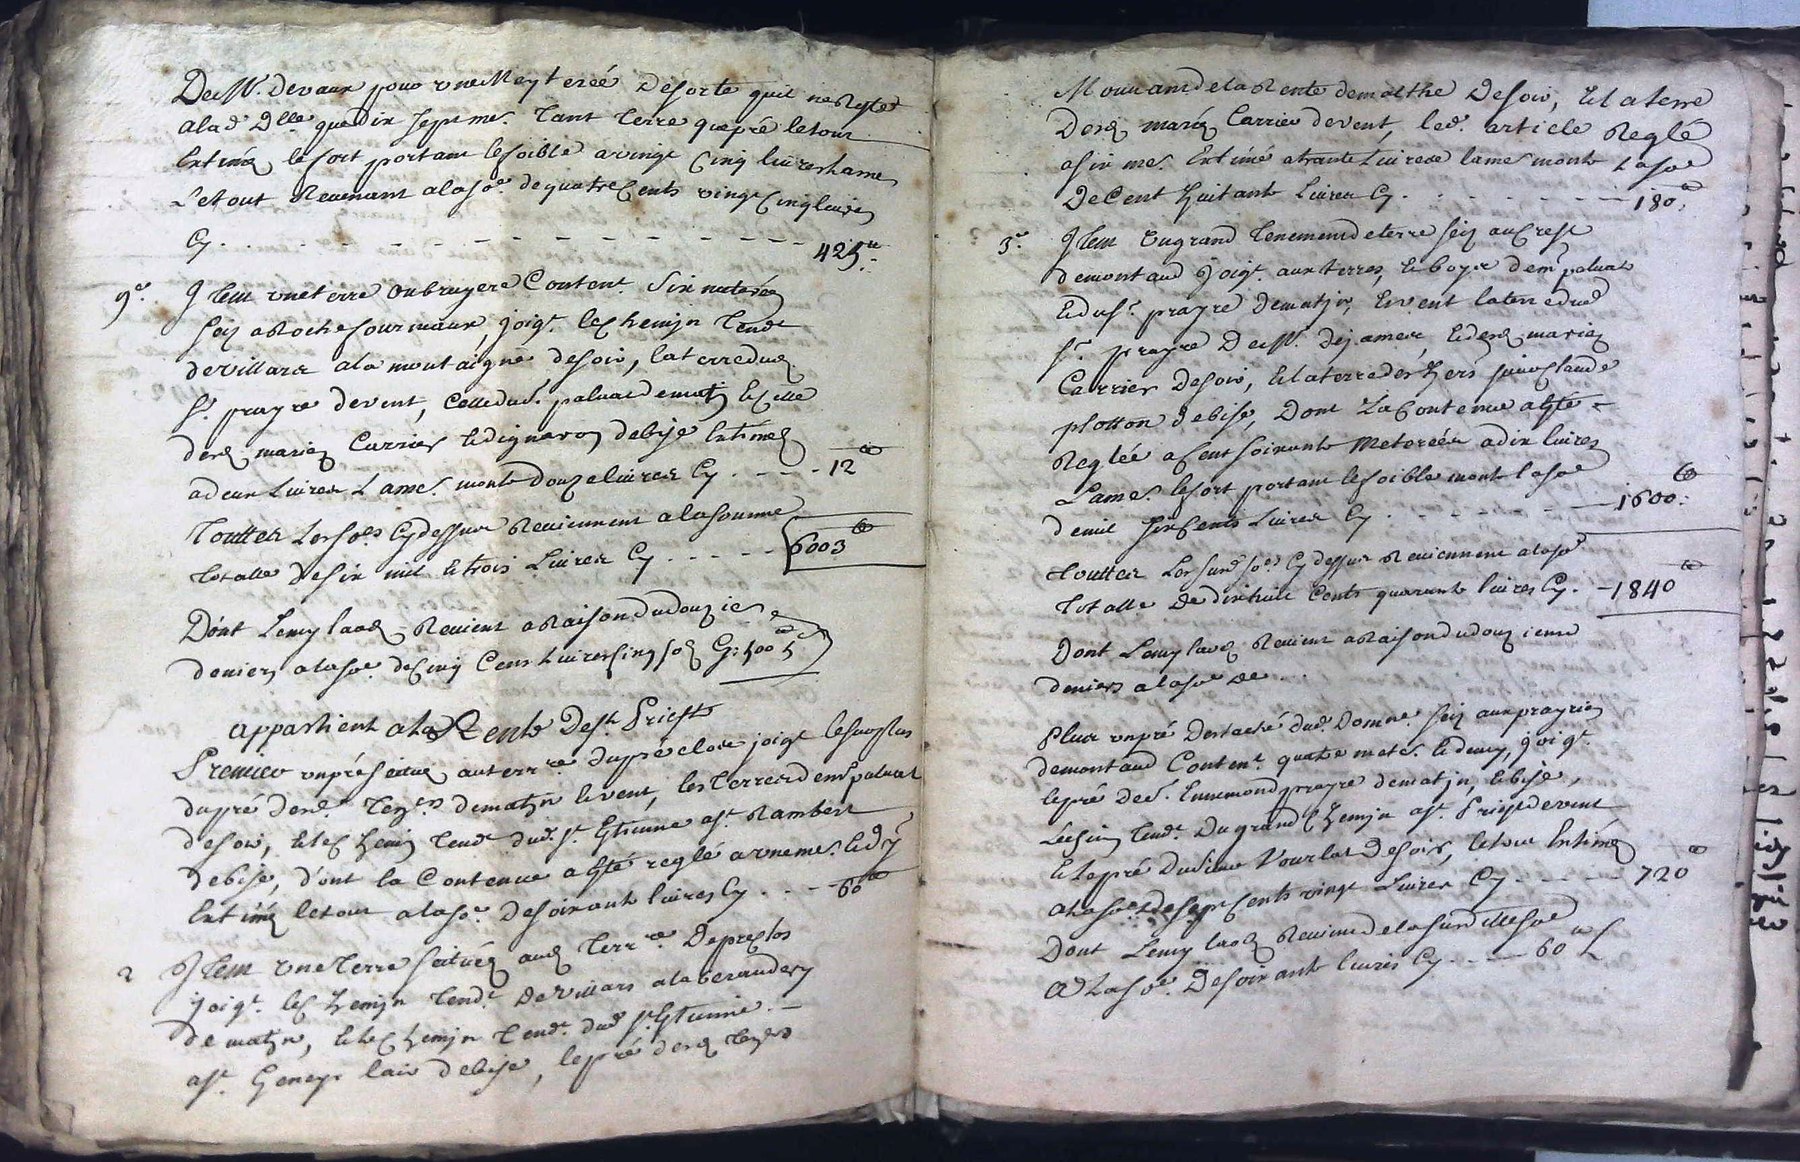 De Mr. devaux pour une Meyterée desorte quil ne Reste
alad. Dlle. que dix sept mes. tant terre que pré le tout
Estimé le fort portant le foible a vingt cinq livres lames
Le tout Revenant a la so.e de quatre cents vingt cinq livres
Cy . . . . . . 425.
9.e Item une terre ou bruyere Content. six meterées
seiz a Roche joig.t le chemin tend.t
de villars a la montaigne de soir, la terre dud.
Sr. prayre de vent, celle du d. paluat de matin et celle
desd. mariez Carrier de bise Estimé
a deux Livres Lames. monte douze livres Cy . . . 12
Touttes Les so.es Cy dessus Reviennent a la somme
totalle de six mil et trois Livres Cy . . . . . 6003
Dont Lemy laod Revient a Raison du douzie.
deniers a la so.e de cinq Cens Livres cinq sols Cy 500 5
appartient a la Rente de St. Priest
Premier un pré scitué au terr.re du pré clos joig.t
du pré desd. de matin et vent, les terres dem.r paluat
de soir, et le chemin tend.t dud. St. Etienne a St. Rambert
de bise, dont la Contenue a esté reglé a une mes. et dy
Estimé le tout a la so.e de soixante livres Cy . . . 60
2 Item une terre scituée aud. terr.re
joig.t le chemin tend.t de villars a la beraudery
de matin, et le chemin tend.t dud. St. Etienne
a St. Geneys lair de bise, le pré desd.
Mouvant de la Rente de mothe de soir, et la terre
desd. mariez Carrier de vent, led. article Reglé
a six mes. Estimé a trante Livres lames monte La so.e
de Cent huitante Livres Cy . . . . . 180.
3.e Item un grand tenement de terre seiz au Crest
demontaud joig.t aux terres, et boys de m.r paluat
et du Sr. prayre de matin, et vent la terre dud.
Sr. prayre De Mr. et desd. mariez
Carrier de soir, et la terre des hers claude
plotton de bise, Dont La Contenue a esté
Reglée a cent soixante Meterées a dix livres
Lames. le fort portant le foible monte la so.e
de mil six cents Livres Cy . . . . . 1600.
Touttes Les susd. so.es Cy dessus Reviennent a la so.e
totalle de dix huit Cents quarante livres Cy. 1840
Dont Lemy laod. Revient a Raison du douzieme
deniers a la so.e de . . .
Plus un pré Destaché dud. Domne. seiz aux prayries
demontaud Content. quatre mete. et demy, joig.t
le pré de S. Ennemond prayre de matin, et bise,
tend.t Du grand chemin a St. Priest de vent
Et le pré du sieur Vourlat de soir, le tout Estimé
a la so.e de sept cents vingt Livres Cy . . . . 720
Dont Lemy laod. Revient de la susditte so.e
a La so.e De soixante livres Cy . . . 60